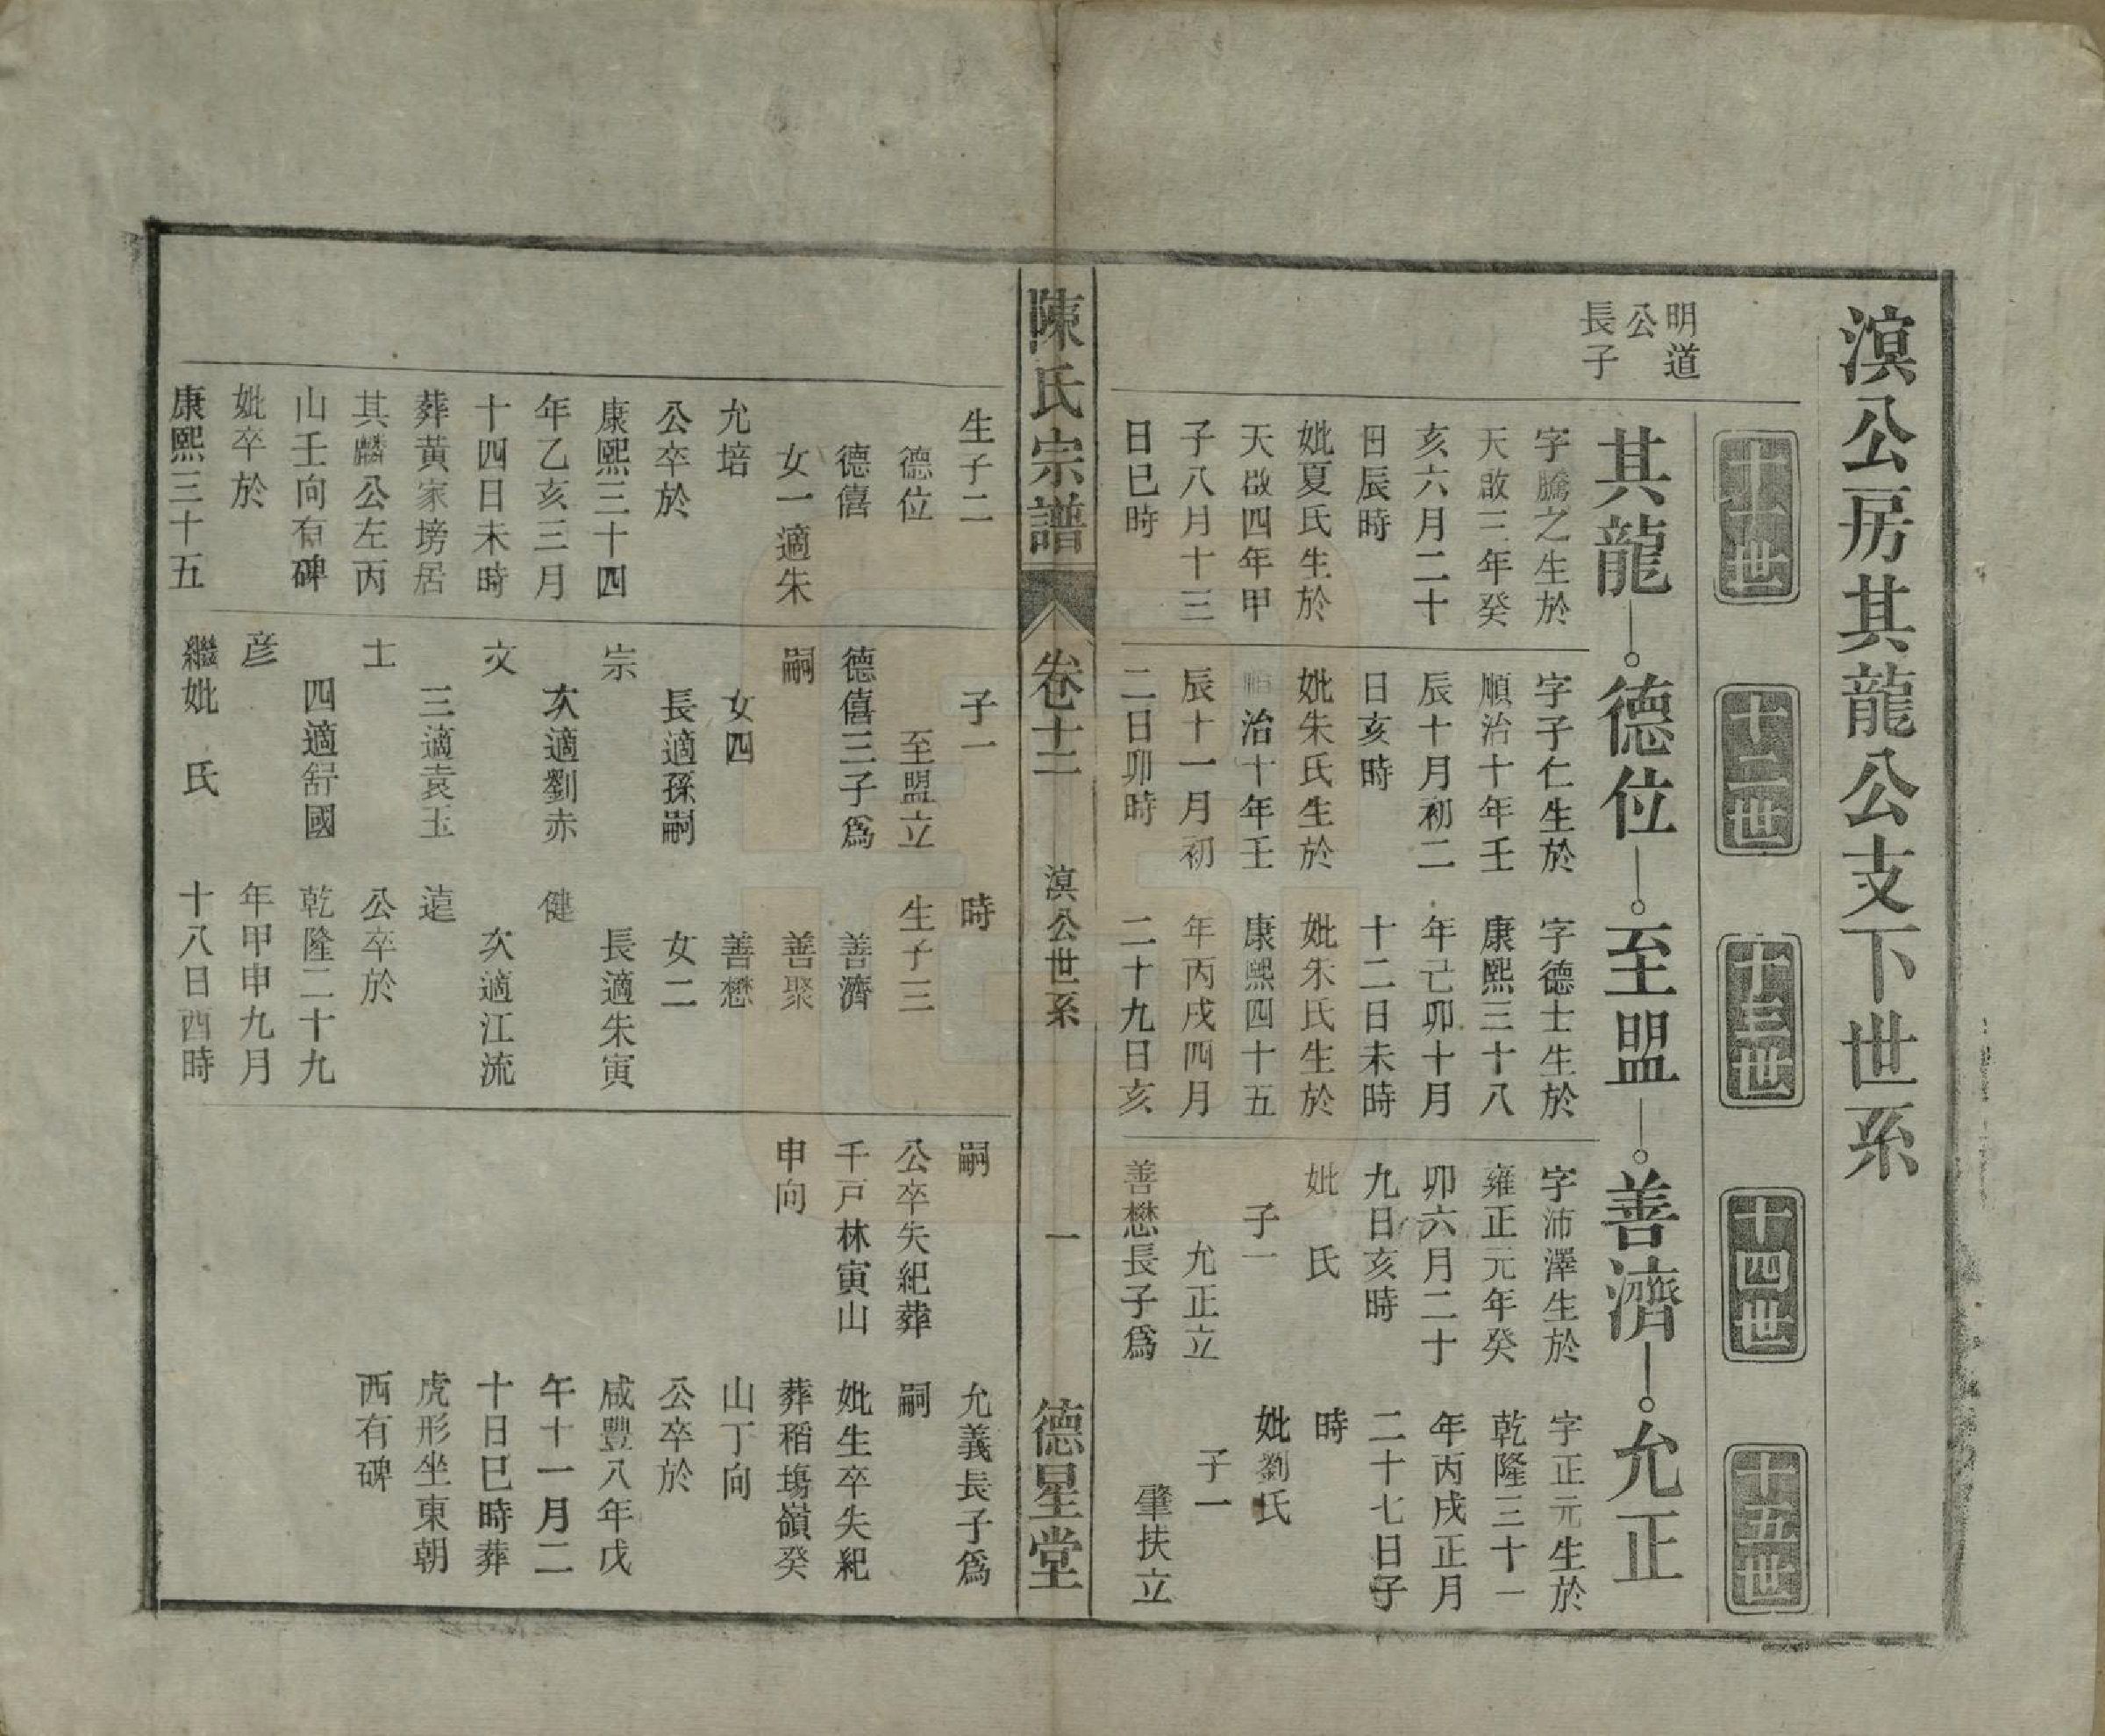 溟公房其龍公支下世系
十一世
十二世
十三世
十四世
十五世
明道
公
長子
其龍
德位
至盟
善濟
允正
字騰之生於
天啟三年癸
亥六月二十
日辰時
妣夏氏生於
天啟四年甲
子八月十三
日巳時
字子仁生於
順治十年壬
辰十月初二
日亥時
妣朱氏生於
順治十年壬
辰十一月初
二日卯時
字德士生於
康熙三十八
年己卯十月
十二日未時
妣朱氏生於
康熙四十五
年丙戌四月
二十九日亥
字沛澤生於
雍正元年癸
卯六月二十
九日亥時
妣 氏
子一
允正立
善懋長子為
字正元生於
乾隆三十一
年丙戌正月
二十七日子
時
妣劉氏
子一
肇扶立
陳氏宗譜
卷十二
溟公世系
一
德星堂
生子二
德位
德僖
女一適朱
允培
公卒於
康熙三十四
年乙亥三月
十四日未時
葬黃家塝居
其麟公左丙
山壬向有碑
妣卒於
康熙三十五
子一
至盟立
德僖三子為
嗣
女四
長適孫嗣
宗
次適劉赤
文
三適袁玉
士
四適舒國
彦
繼妣 氏
時
生子三
善濟
善聚
善懋
女二
長適朱寅
健
次適江流
遠
公卒於
乾隆二十九
年甲申九月
十八日酉時
嗣
公卒失紀葬
千戸林寅山
申向
允義長子為
嗣
妣生卒失紀
葬稻塲嶺癸
山丁向
公卒於
咸豐八年戊
午十一月二
十日巳時葬
虎形坐東朝
西有碑